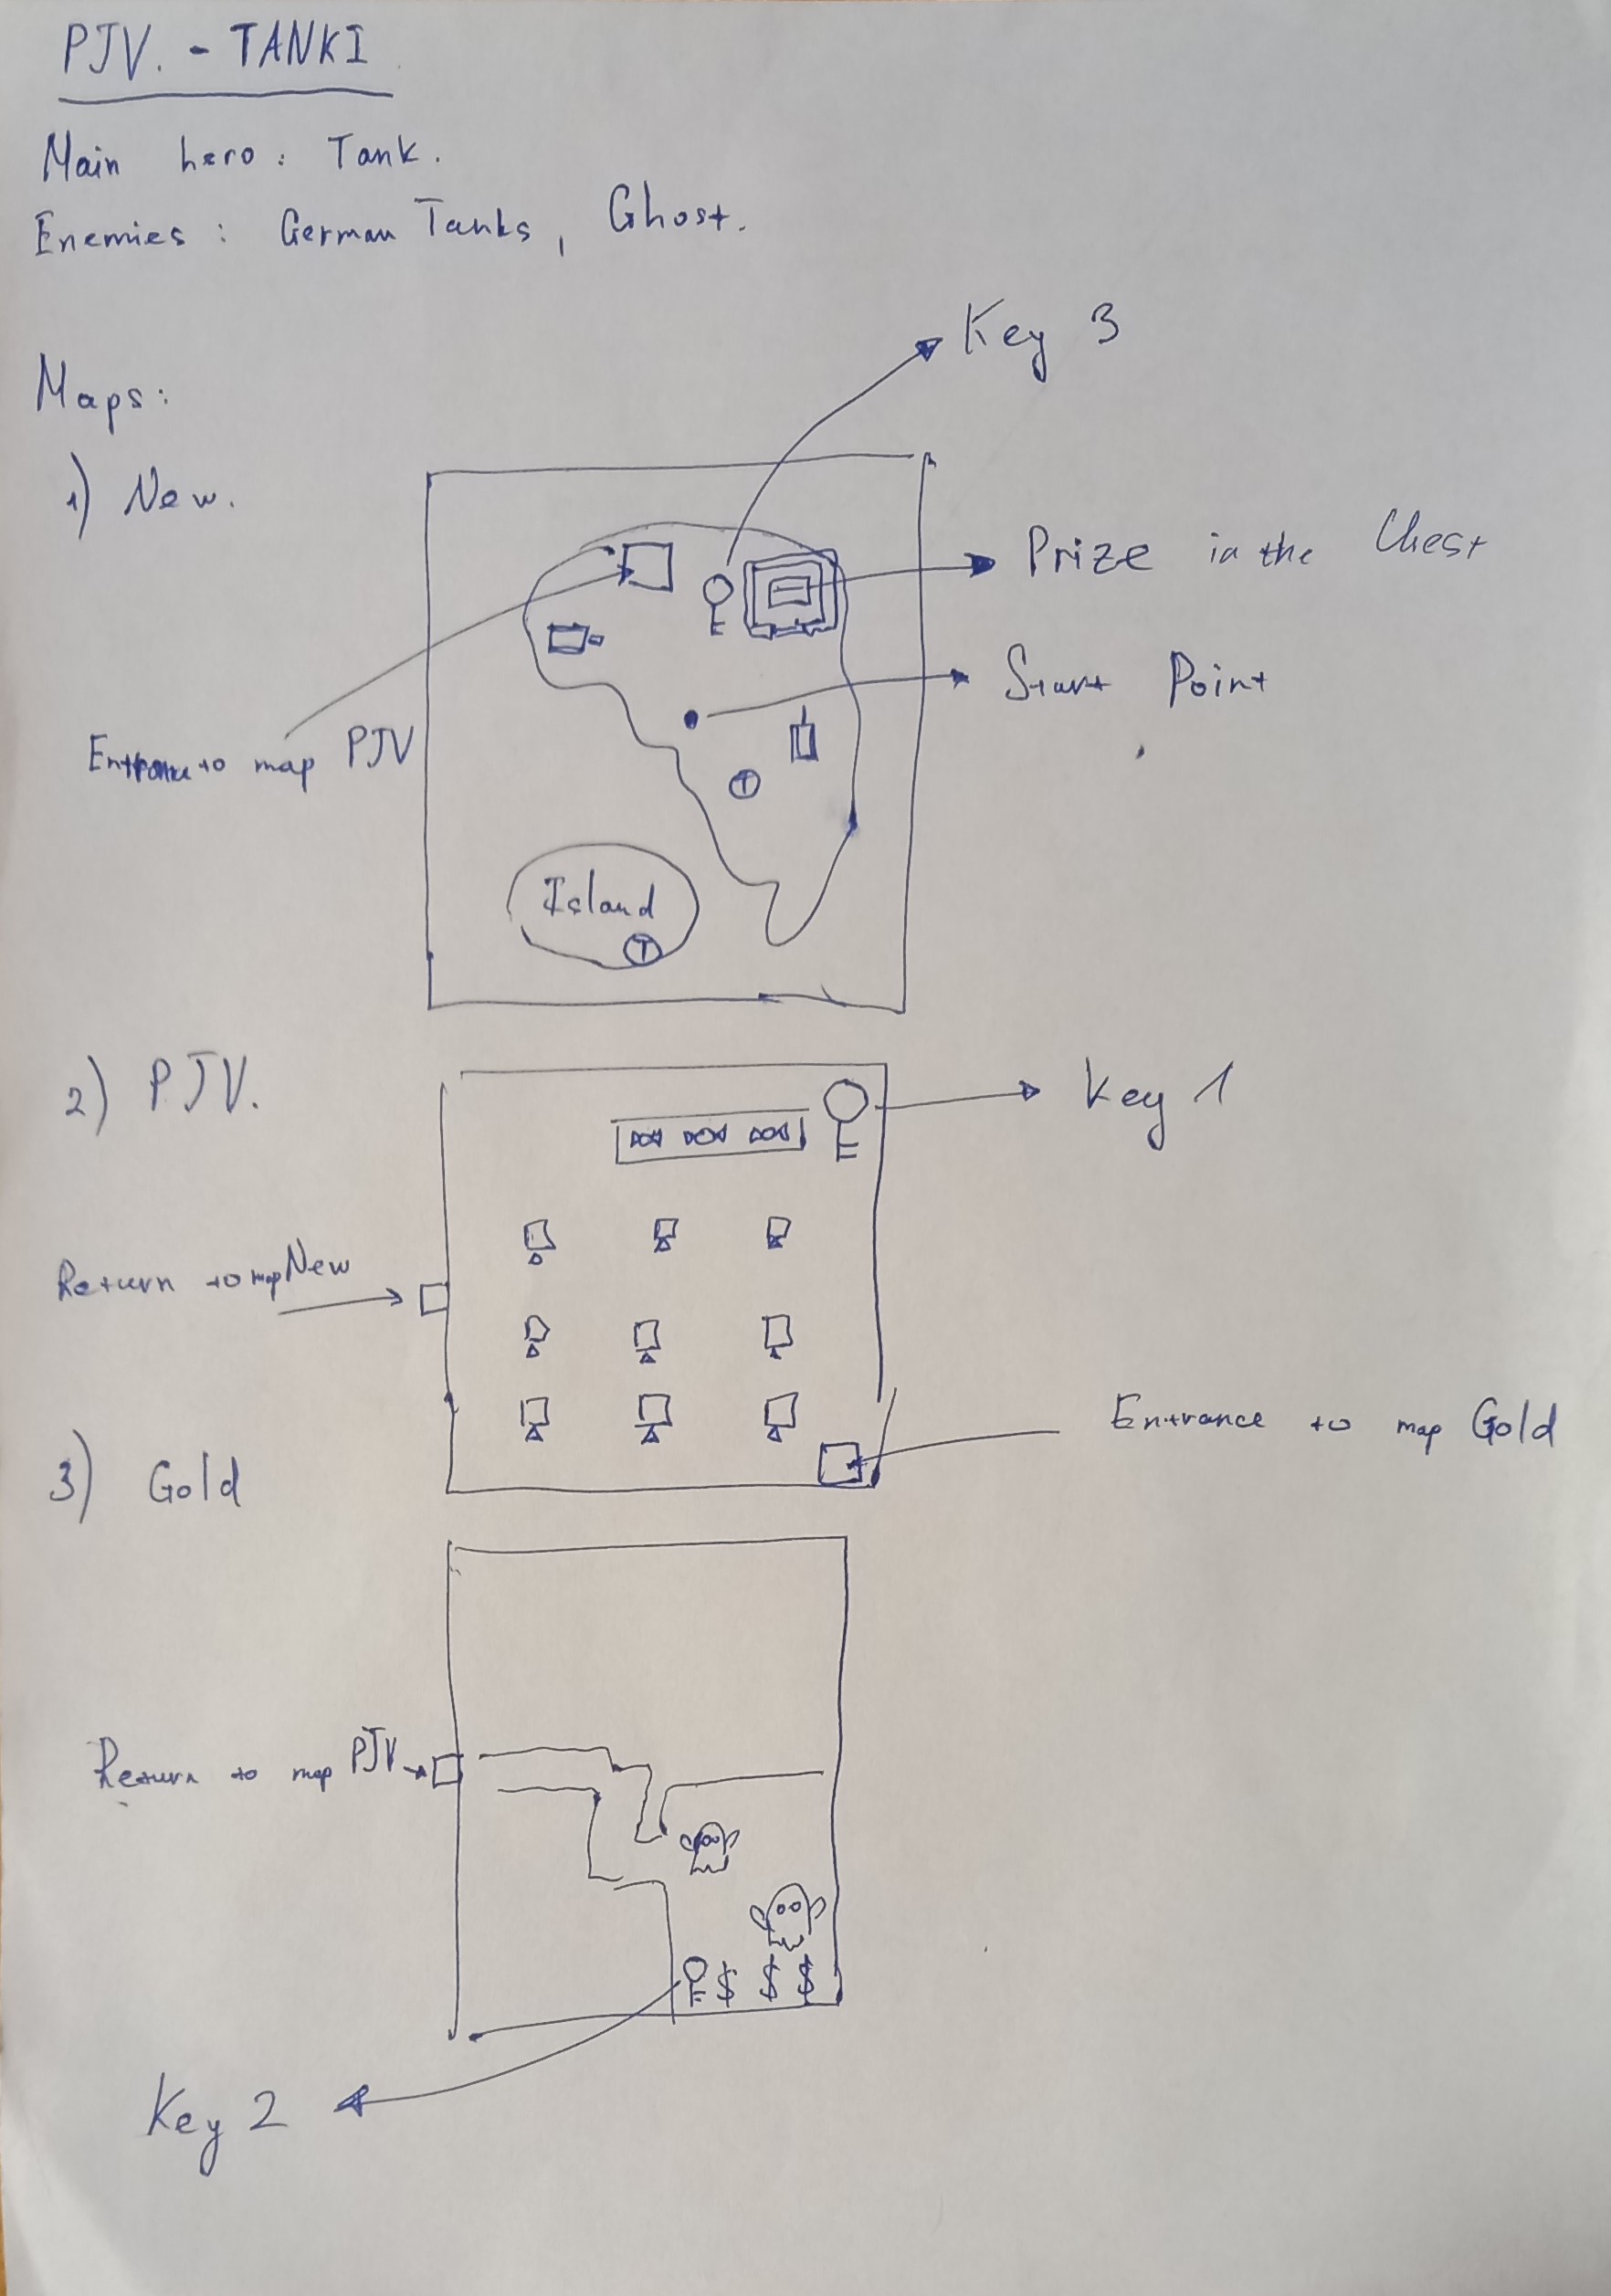 PJV. - TANKI
Main hero: Tank.
Enemies: German Tanks, Ghost.
Key 3
Maps:
1) New.
Prize in the Chest
Start Point
Entrance to map PJV
T
Island
T
2) PJV.
Key 1
Return to map New
Entrance to map Gold
3) Gold
Return to map PJV
$ $ $
Key 2